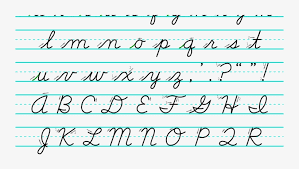 l m n o p q r s t
u v w x y z . ' , ? “ ” !
A B C D E F G H I
J K L M N O P Q R